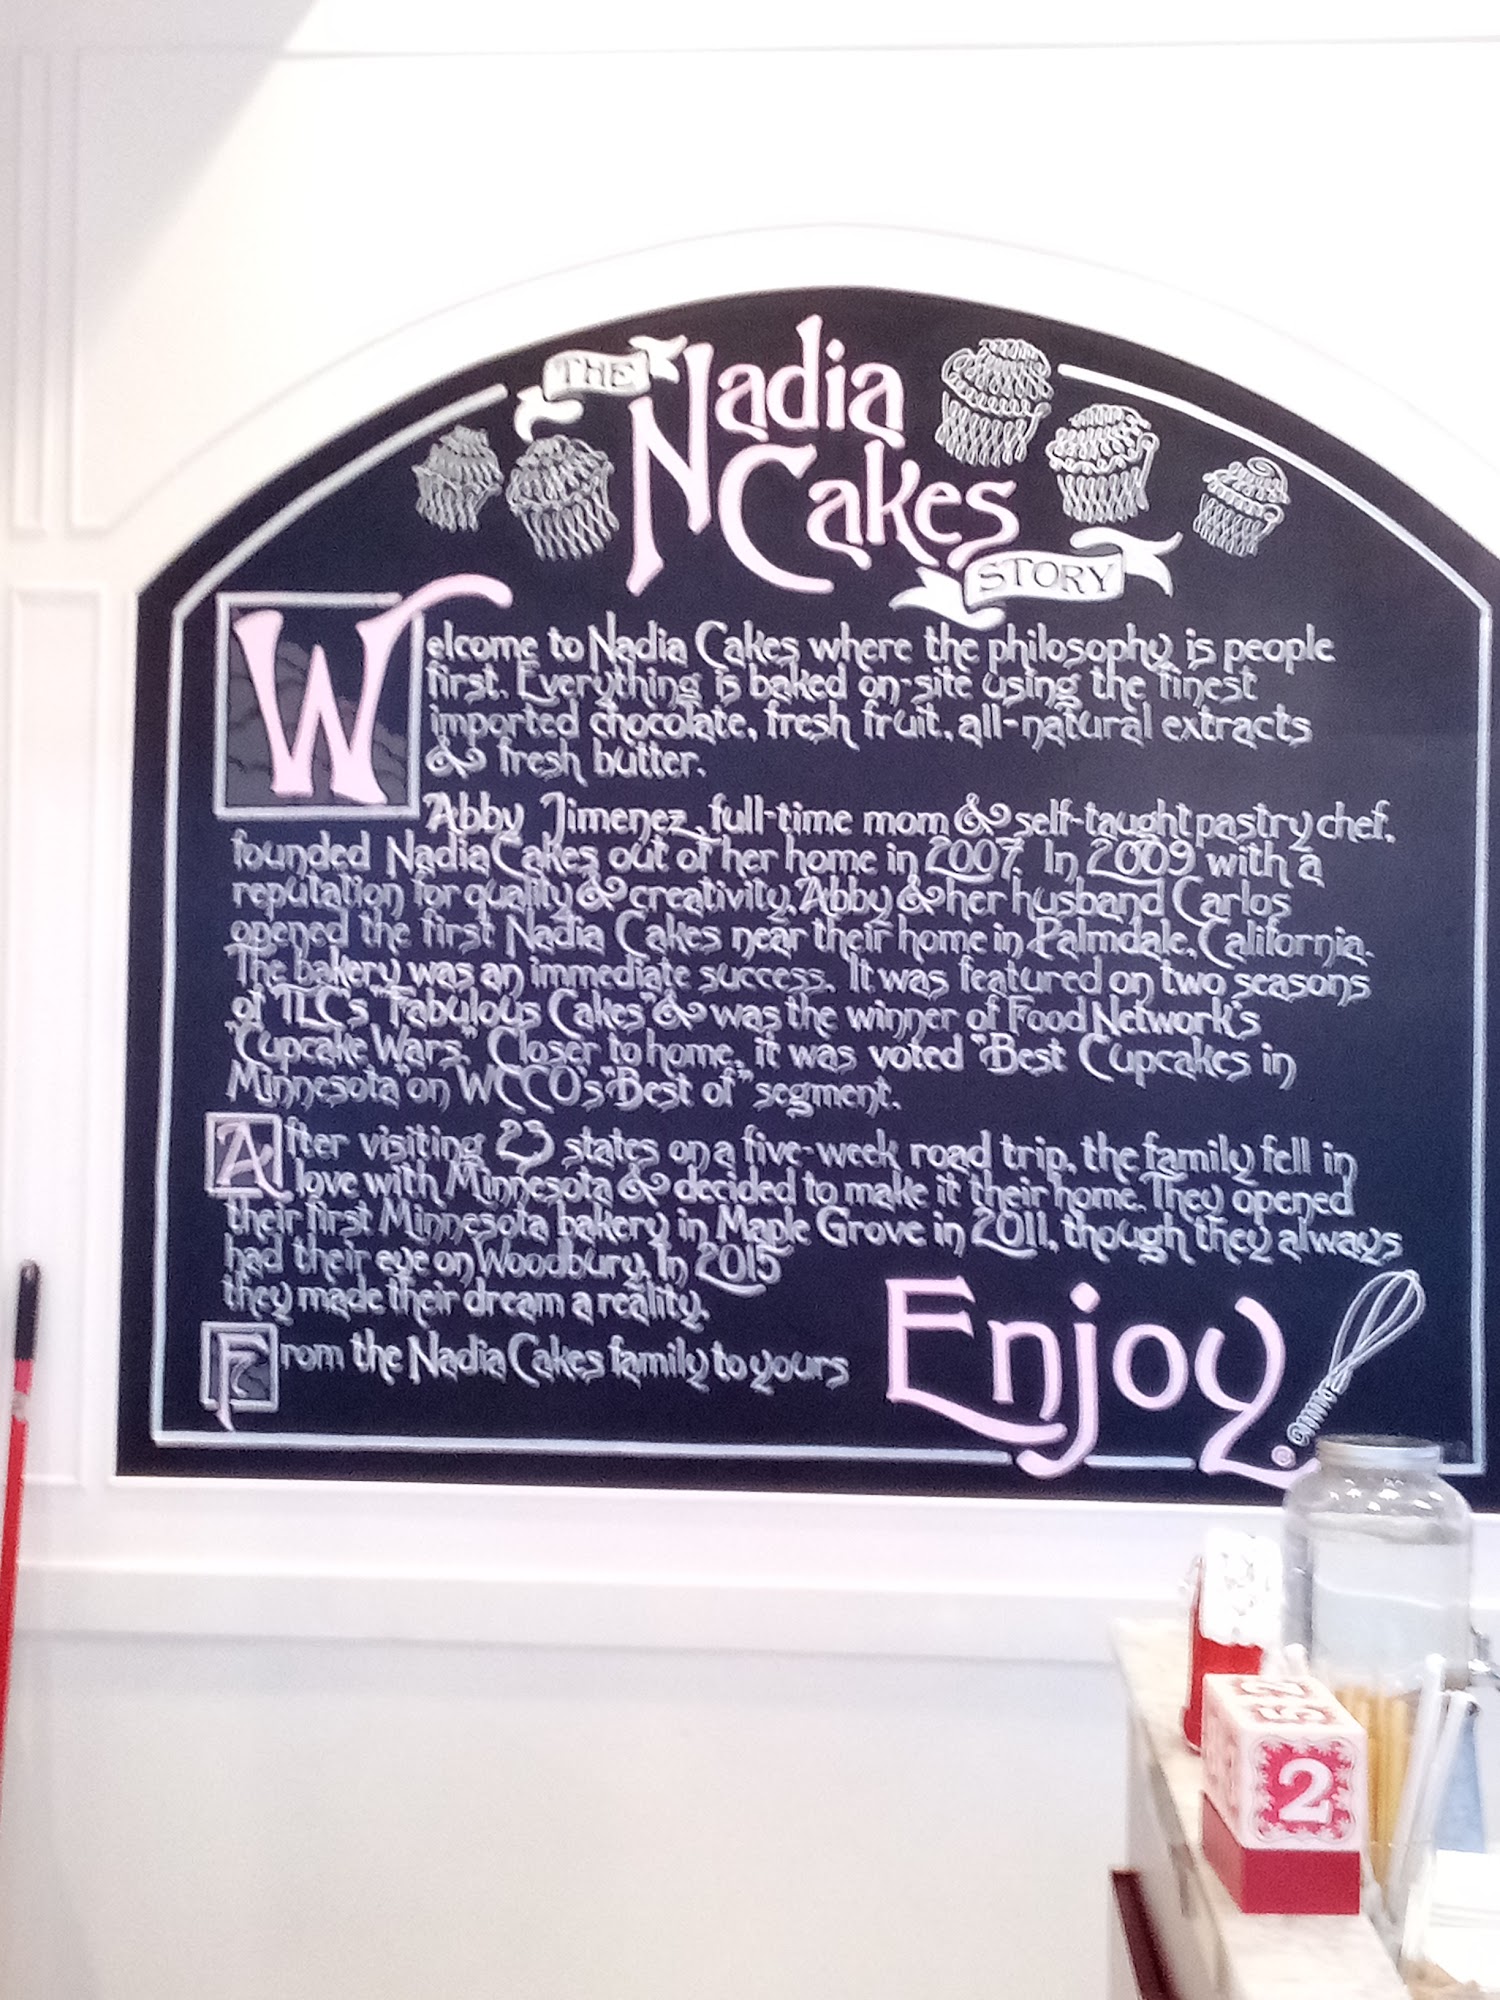 THE Nadia
Cakes
STORY
Welcome to Nadia Cakes where the philosophy is people
first. Everything is baked on-site using the finest
imported chocolate, fresh fruit, all-natural extracts
& fresh butter.
Abby Jimenez, full-time mom & self-taught pastry chef,
founded Nadia Cakes out of her home in 2007. In 2009 with a
reputation for quality & creativity, Abby & her husband Carlos
opened the first Nadia Cakes near their home in Palmdale, California.
The bakery was an immediate success. It was featured on two seasons
of TLC's "Fabulous Cakes" & was the winner of Food Network's
"Cupcake Wars." Closer to home, it was voted "Best Cupcakes in
Minnesota" on WCCO's "Best of" segment.
After visiting 23 states on a five-week road trip, the family fell in
love with Minnesota & decided to make it their home. They opened
their first Minnesota bakery in Maple Grove in 2011, though they always
had their eye on Woodbury. In 2015
they made their dream a reality.
From the Nadia Cakes family to yours
Enjoy.
2